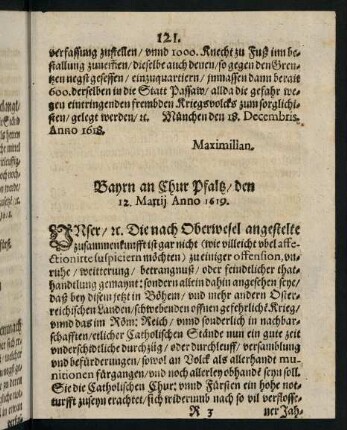 121.
verfassung zustellen / vnnd 1000. Knecht zu Fuß inn be-
stallung zunemen / dieselbe auch denen / so gegen den Gren-
tzen negst gesessen / einzuquartiern / inmassen dann berait
600. derselben in die Statt Passaw / allda die gefahr we-
gen eintringenden frembden Kriegsvolcks zum sorglich-
sten / gelegt werden / ꝛc. München den 18. Decembris
Anno 1618.
Maximilian.
Bayrn an Chur Pfaltz / den
12. Martij Anno 1619.
VNser / ꝛc. Die nach Oberwesel angestelte
zusammenkunfft ist gar nicht (wie villeicht vbel affe-
ctionirte suspiciern möchten) zu einiger offension, vn-
ruhe / weitterung / betrangnuß / oder feindtlicher that-
handlung gemaint: sondern allein dahin angesehen seye /
daß bey disem jetzt in Böhem / vnd mehr andern Oster-
reichischen Landen / schwebenden offnen gefehrliche Krieg /
vnnd das im Röm: Reich / vnnd sonderlich in nachbar-
schafften / etlicher Catholischen Stände nun ein gute zeit
vnderschidtliche durchzüg / oder durchleuff / versamblung
vnd befürderungen / sowol an Volck als allerhandt mu-
nitionen fürgangen / vnd noch allerley obhande seyn soll.
Sie die Catholischen Chur: vnnd Fürsten ein hohe not-
turfft zuseyn erachtet / sich widerumb nach so vil verflosse-
R 3 ner Jah-